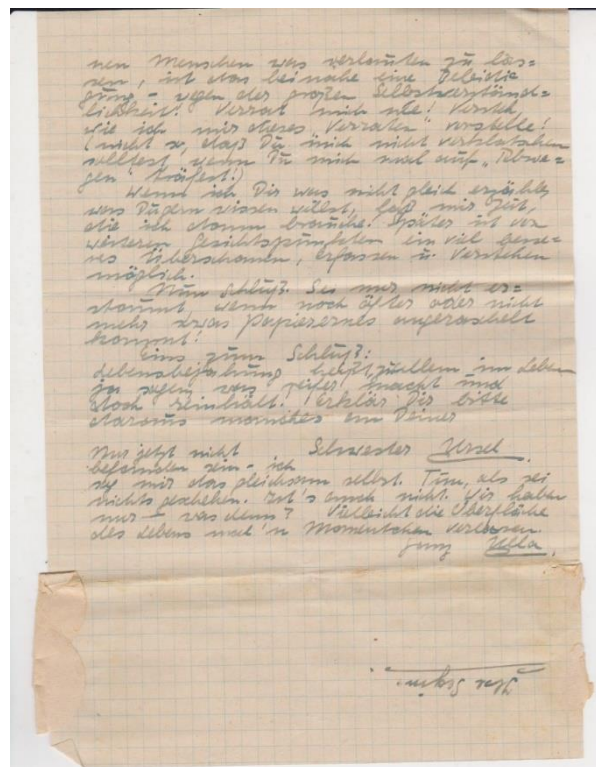 nen Menschen was verlauten zu las=
sen, ist das beinahe eine Beleidi=
gung – wegen der großen Selbstverständ=
lichkeit! Verrat mich nie! Versteh,
wie ich mir dieses „Verraten" vorstelle!
(nicht so, daß Du mich nicht verklatschen
solltest, wenn Du mich mal auf „
gen" träfest!)
Wenn ich Dir was nicht gleich erzähle,
was Du gern wissen willst, laß mir Zeit,
die ich dann brauche. Später ist von
weiteren Gesichtspunkten ein viel besse=
res Überschauen, Erfassen u. Verstehen
möglich.
Nun Schluß. Sei mir nicht er=
staunt, wenn noch öfter oder nicht
mehr etwas Papierernes angeraschelt
kommt!
Eins zum Schluß:
Lebensbejahung heißt zu allem im Leben
ja sagen was reifer macht und
doch reinhält. Erklär Dir bitte
daraus manches an Deiner
Schwester Ursel.
Nur jetzt nicht
befunden sein – ich
sag mir das gleichsam selbst. Tun, als sei
nichts geschehen. Ist's auch nicht. Wir haben
nur – was denn? Vielleicht die Oberfläche
des Lebens mal 'n Momentchen verloren.